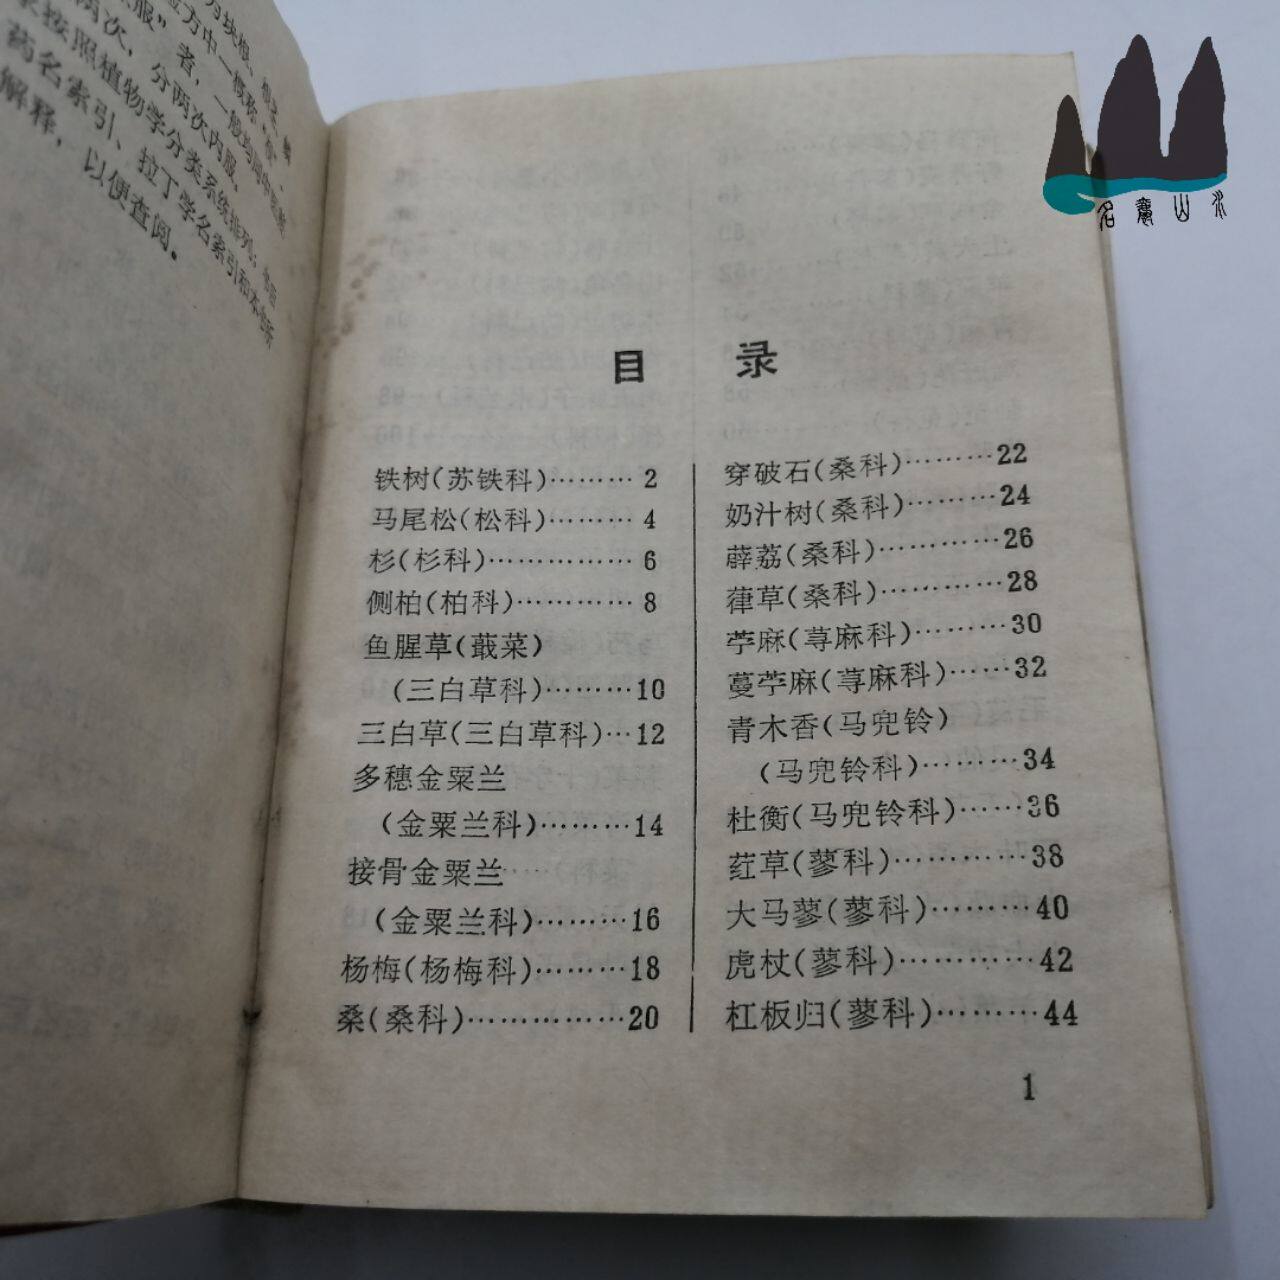 分两次内服。
按照植物学分类系统排列；书后
药名索引、拉丁学名索引和本册所
解释，以便查阅。
目 录
铁树(苏铁科)………2
马尾松(松科)………4
杉(杉科)……………6
侧柏(柏科)…………8
鱼腥草(蕺菜)
(三白草科)………10
三白草(三白草科)…12
多穗金粟兰
(金粟兰科)………14
接骨金粟兰
(金粟兰科)………16
杨梅(杨梅科)………18
桑(桑科)……………20
穿破石(桑科)………22
奶汁树(桑科)………24
薜荔(桑科)…………26
葎草(桑科)…………28
苎麻(荨麻科)………30
蔓苎麻(荨麻科)……32
青木香(马兜铃)
(马兜铃科)………34
杜衡(马兜铃科)……36
荭草(蓼科)…………38
大马蓼(蓼科)………40
虎杖(蓼科)…………42
杠板归(蓼科)………44
1